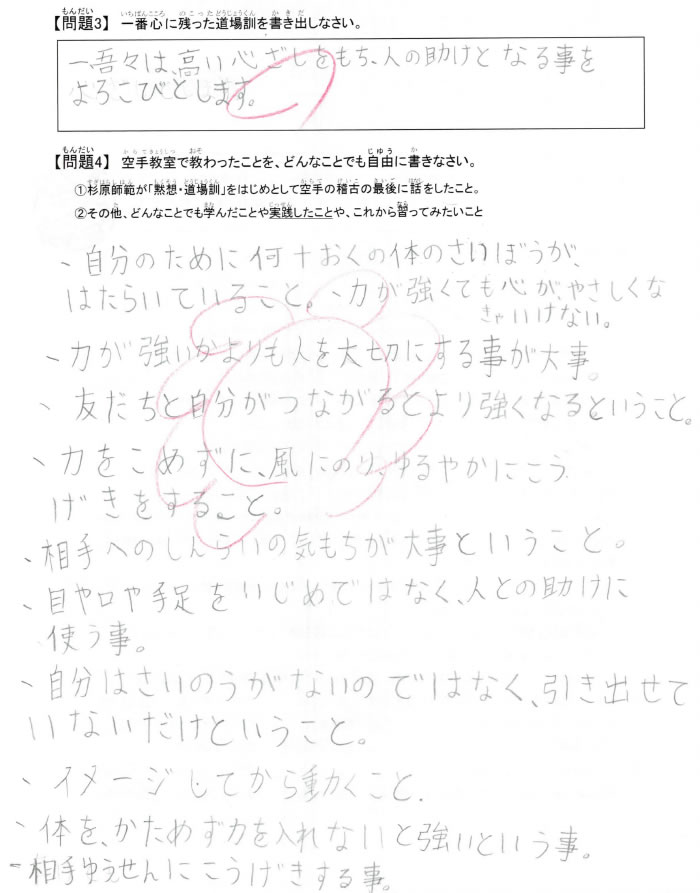 【問題3】 一番心に残った道場訓を書き出しなさい。
一吾々は、高い心ざしをもち、人の助けとなる事を
よろこびとします。
【問題4】 空手教室で教わったことを、どんなことでも自由に書きなさい。
①杉原師範が「黙想・道場訓」をはじめとして空手の稽古の最後に話をしたこと。
②その他、どんなことでも学んだことや実践したことや、これから習ってみたいこと
、自分のために何十おくの体のさいぼうが、
はたらいていること。、力が強くても心がやさしくな
きゃいけない。
、力が強いかよりも人を大切にする事が大事。
、友だちと自分がつながるとより強くなるということ。
、力をこめずに、風にのり、ゆるやかにこう
げきをすること。
、相手へのしんらいの気もちが大事ということ。
、目や口や手足をいじめではなく、人との助けに
使う事。
、自分はさいのうがないのではなく、引き出せて
いないだけということ。
、イメージしてから動くこと.
、体を、かためず力を入れないと強いという事。
、相手ゆうせんにこうげきする事。